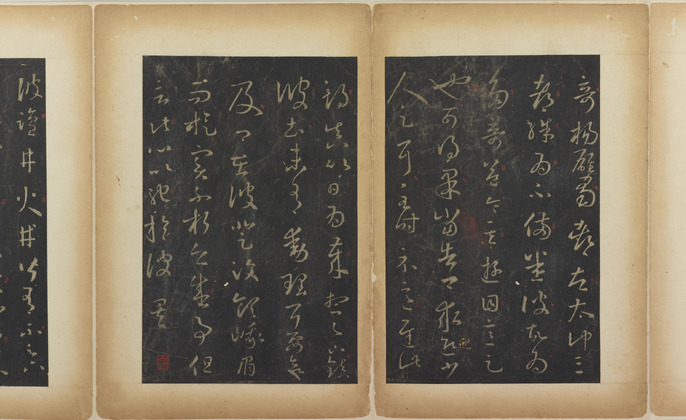 奇揚雄蜀都左太沖三
都殊為不備悉彼故為
多奇益令其遊目意足
也可得果當告卿求迎少
人足耳至時示意遲此
期真以日為歲想足下鎮
彼土未有動理耳要欲
及卿在彼登汶領峨眉
而旋實不朽之盛事但
言此心以馳於彼矣
彼鹽井火井皆有不足